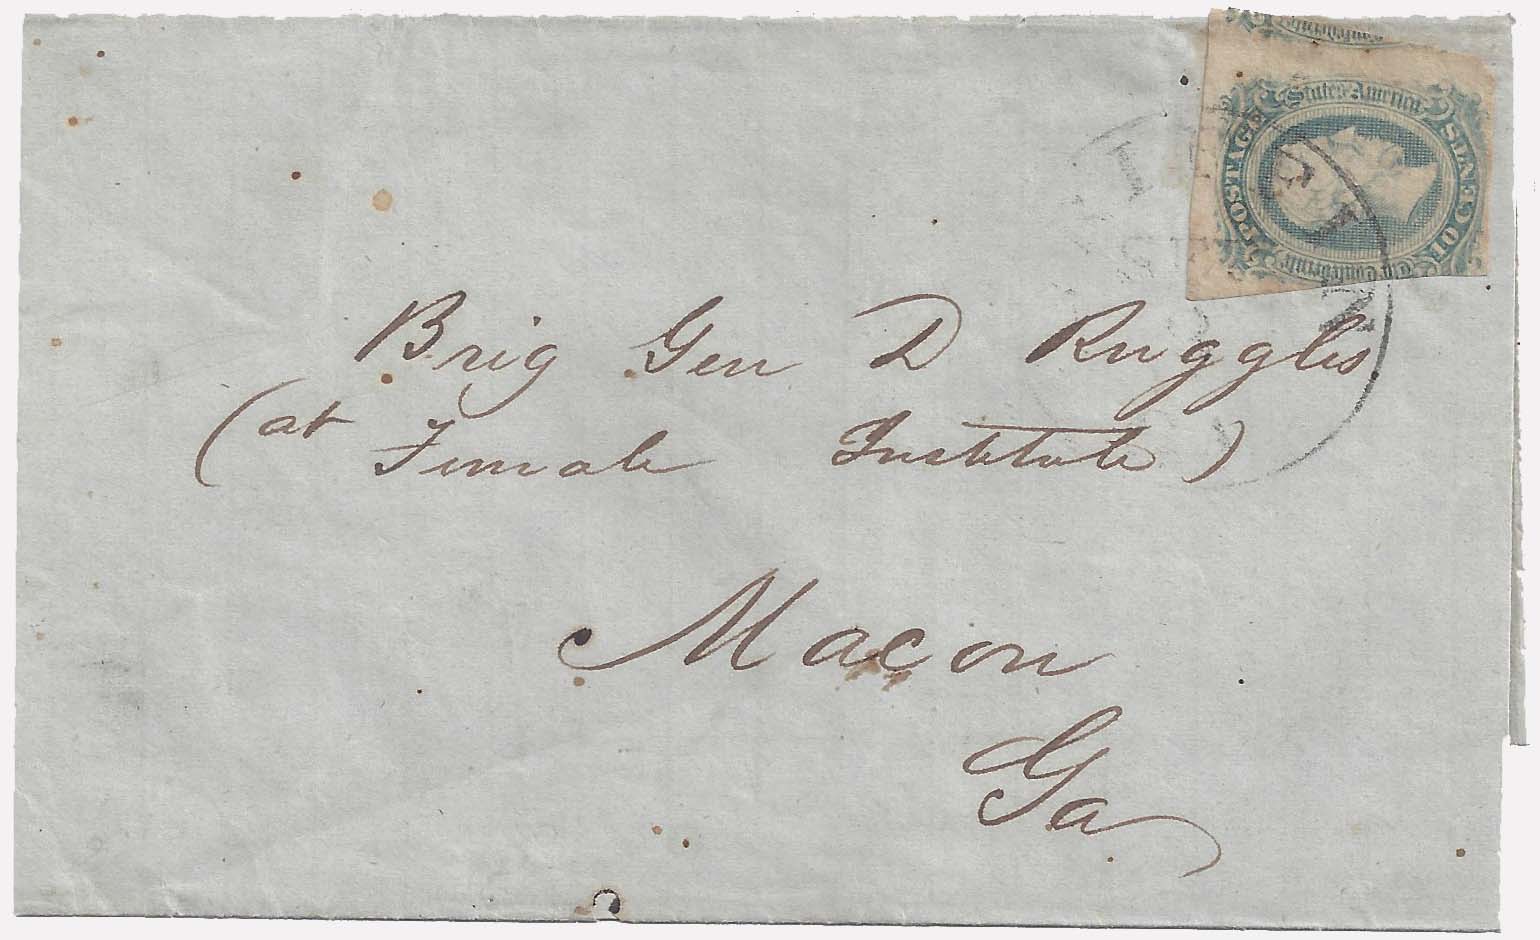 Confederate
The Confederate
States America
POSTAGE
10 CENTS
Brig Gen D Ruggles
(at Female Institute)
Macon
Ga